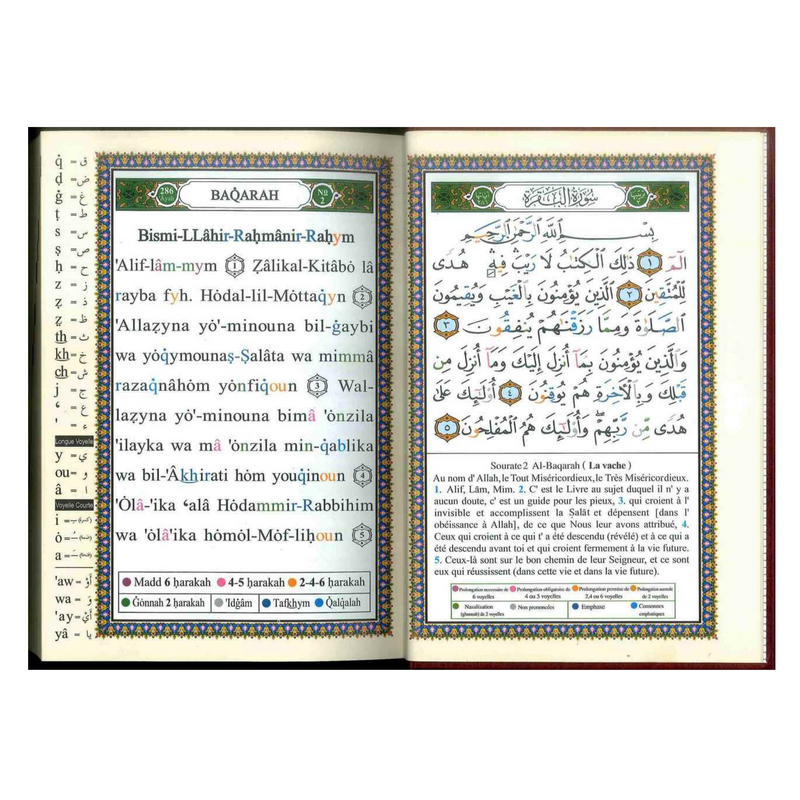 q̇ = ق
ḍ = ض
ġ = غ
ṭ = ط
s = س
ṣ = ص
ḥ = ح
z = ز
ẓ = ظ
th = ث
kh = خ
ch = ش
j = ج
ʻ = ع
ʼ = ء
Longue Voyelle
y = ي
ou = و
â = ا
Voyelle Courte
i =
ȯ =
a =
'aw = أَوْ
wa = وَ
'ay = أَيْ
yâ = يَا
286
Ayah
BAQ̇ARAH
No
2
Bismi-LLâhir-Raḥmânir-Raḥym
'Alif-lâm-mym 1 Ẓâlikal-Kitâbȯ lâ
rayba fyh. Hȯdal-lil-Mȯttaq̇yn 2
'Allaẓyna yȯ'-minouna bil-ġaybi
wa yȯq̇ymounaṣ-Ṣalâta wa mimmâ
razaq̇nâhȯm yȯnfiq̇oun 3 Wal-
laẓyna yȯ'-minouna bimâ 'ȯnzila
'ilayka wa mâ 'ȯnzila min-q̇ablika
wa bil-'Âkhirati hȯm youq̇inoun 4
'Ȯlâ-'ika ʻalâ Hȯdammir-Rabbihim
wa 'ȯlâ'ika hȯmȯl-Mȯf-liḥoun 5
Madd 6 ḥarakah 4-5 ḥarakah 2-4-6 ḥarakah
Ġȯnnah 2 ḥarakah 'Idġâm Tafkhym Q̇alq̇alah
سُورَةُ البَقَرَة
بِسْمِ اللَّهِ الرَّحْمَٰنِ الرَّحِيمِ
الٓمٓ ١ ذَٰلِكَ الْكِتَابُ لَا رَيْبَ فِيهِ هُدًى
لِّلْمُتَّقِينَ ٢ الَّذِينَ يُؤْمِنُونَ بِالْغَيْبِ وَيُقِيمُونَ
الصَّلَوٰةَ وَمِمَّا رَزَقْنَاهُمْ يُنفِقُونَ ٣
وَالَّذِينَ يُؤْمِنُونَ بِمَا أُنزِلَ إِلَيْكَ وَمَا أُنزِلَ مِن
قَبْلِكَ وَبِالْآخِرَةِ هُمْ يُوقِنُونَ ٤ أُولَٰئِكَ عَلَىٰ
هُدًى مِّن رَّبِّهِمْ وَأُولَٰئِكَ هُمُ الْمُفْلِحُونَ ٥
Sourate 2 Al-Baqarah ( La vache )
Au nom d' Allah, le Tout Miséricordieux, le Très Miséricordieux.
1. Alif, Lâm, Mim. 2. C' est le Livre au sujet duquel il n' y a
aucun doute, c' est un guide pour les pieux, 3. qui croient à l'
invisible et accomplissent la Ṣalāt et dépensent [dans l'
obéissance à Allah], de ce que Nous leur avons attribué, 4.
Ceux qui croient à ce qui t' a été descendu (révélé) et à ce qui a
été descendu avant toi et qui croient fermement à la vie future.
5. Ceux-là sont sur le bon chemin de leur Seigneur, et ce sont
eux qui réussissent (dans cette vie et dans la vie future).
Prolongation necessaire de 6 voyelles
Prolongation obligatoire de 4 ou 5 voyelles
Prolongation permise de 2,4 ou 6 voyelles
Prolongation normale de 2 voyelles
Nasalisation (ghunnah) de 2 voyelles
Non prononcées
Emphase
Consonnes emphatiques